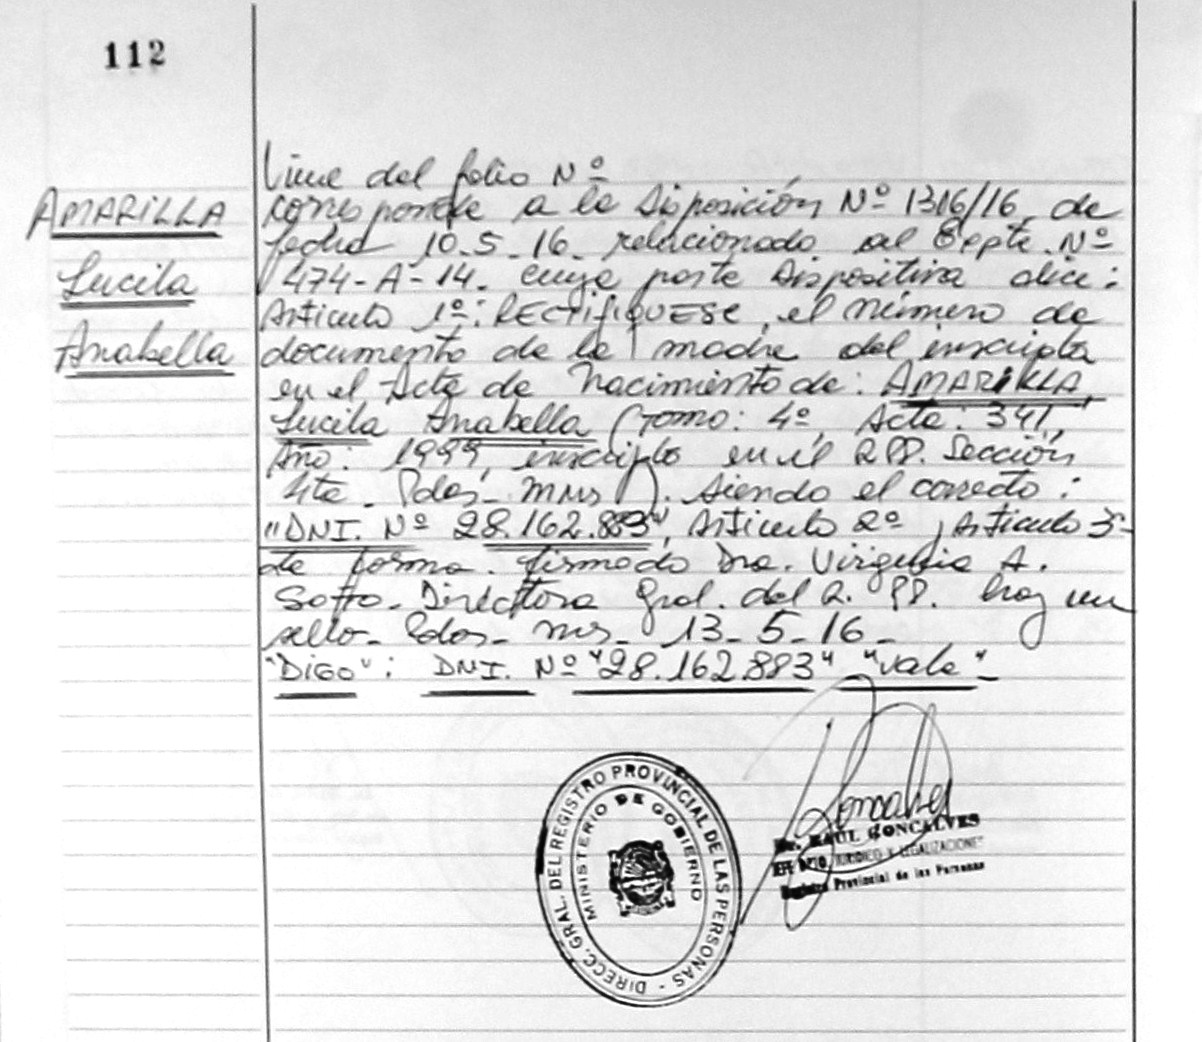 112
AMARILLA
Lucila
Anabella
Viene del folio Nº
corresponde a la Disposición Nº 1316/16, de
fecha 10-5-16 relacionado al Expte. Nº
474-A-14. cuya parte dispositiva dice:
Artículo 1º: RECTIFIQUESE, el número de
documento de la madre del inscripta
en el Acta de Nacimiento de: AMARILLA,
Lucila Anabella (Tomo: 4º, Acta: 341,
Año: 1999, inscripto en el RPP. Sección
4ta - Pdas - Mnes). siendo el correcto:
"DNI. Nº 28.162.883", Artículo 2º, Artículo 3º-
de forma. firmado Dra. A.
Sotto - Directora Gral. del R. PP. hay un
sello - Pdas - Mns - 13-5-16-
"DIGO": DNI. Nº "28.162.883" "vale"-
DIRECC. GRAL. DEL REGISTRO PROVINCIAL DE LAS PERSONAS -
MINISTERIO DE GOBIERNO
Dr. RAUL GONCALVES
JEFE DPTO. JURIDICO Y LEGALIZACIONES
Registro Provincial de las Personas